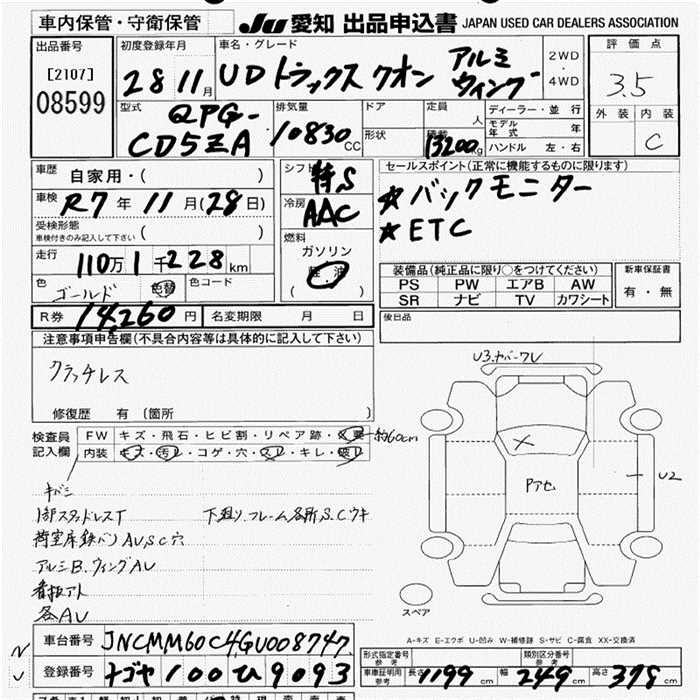 車内保管・守衛保管 JU 愛知 出品申込書 JAPAN USED CAR DEALERS ASSOCIATION
出品番号 [2107] 08599
初度登録年月 28 11月
車名・グレード UDトラックス クオン アルミウィング 2WD・4WD
評価点 3.5
外装 内装 C
型式 QPG-CD5ZA
排気量 10830 CC
ドア 形状
定員 人 積載 13200kg
ディーラー・並行
モデル年式 年
ハンドル 左・右
車歴 自家用・( )
車検 R7年11月(28日)
受検形態 車検付きのみ記入して下さい ( )
走行 110万1千228km
色 ゴールド 色替 色コード
R券 14,260円 名変期限 月 日
シフト 特S
冷房 AAC
燃料 ガソリン 軽油 ( )
セールスポイント(正常に機能するものに限ります)
☆バックモニター
☆ETC
装備品(純正品に限り○をつけてください)
PS PW エアB AW
SR ナビ TV カワシート
新車保証書 有・無
後日品
注意事項申告欄(不具合内容等は具体的に記入して下さい)
クラッチレス
修復歴 有 (箇所 )
検査員記入欄
FW キズ・飛石・ヒビ割・リペア跡・ 約60cm
内装 キズ・汚レ・コゲ・穴・スレ・キレ・破レ
キバミ
下廻リ.フレーム各所S.Cウキ
AU,SC穴
アルミB.ウィングAU
看板アト
各AU
U3.
U2
スペア
A-キズ E-エクボ U-凹み W-補修跡 S-サビ C-腐食 XX-交換済
車台番号 JNCMM60C4GU008747
登録番号 ナゴヤ100ひ9093
形式指定番号 参考 類別区分番号 参考
車庫証明用 参考 長さ 1199cm 幅 249cm 高さ 378cm